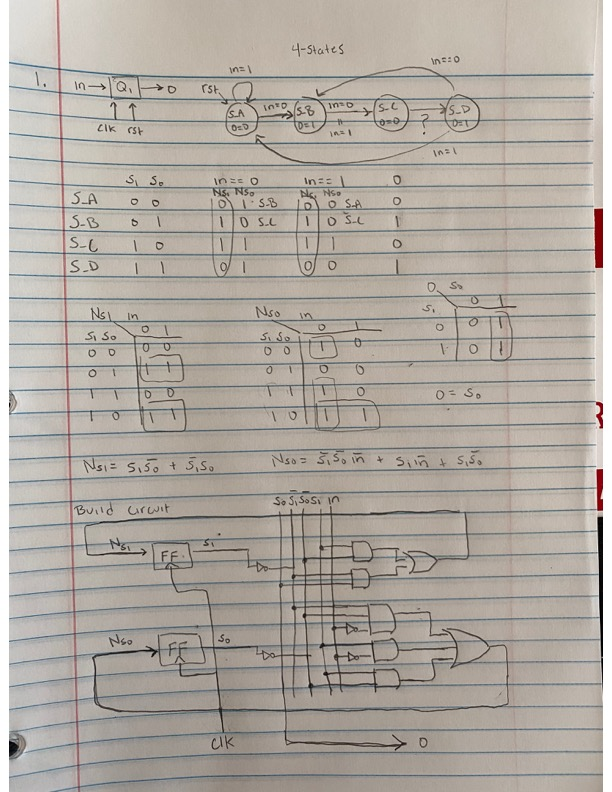 4-States
1. in → Q1 → O
clk rst
rst in=1 in==0
S_A O=0 in=0 S_B O=1 in=0 S_C O=0 S_D O=1
in=1 ?
in=1
S1 S0 in==0 in==1 O
NS1 NS0 NS1 NS0
S_A 0 0 0 1 S-B 0 0 S-A 0
S_B 0 1 1 0 S-C 1 0 S-C 1
S_C 1 0 1 1 1 1 0
S_D 1 1 0 1 0 0 1
NS1 in
0 1
S1 S0
0 0 0 0
0 1 1 1
1 1 0 0
1 0 1 1
NS0 in
0 1
S1 S0
0 0 1 0
0 1 0 0
1 1 1 0
1 0 1 1
O S0
S1 0 1
0 0 1
1 0 1
O = S0
NS1 = S1S̄0 + S̄1S0
NS0 = S̄1S̄0 in̄ + S1in̄ + S1S̄0
Build Circuit
S0 S̄1 S̄0 S1 in
NS1 FF S1
NS0 FF S0
clk O